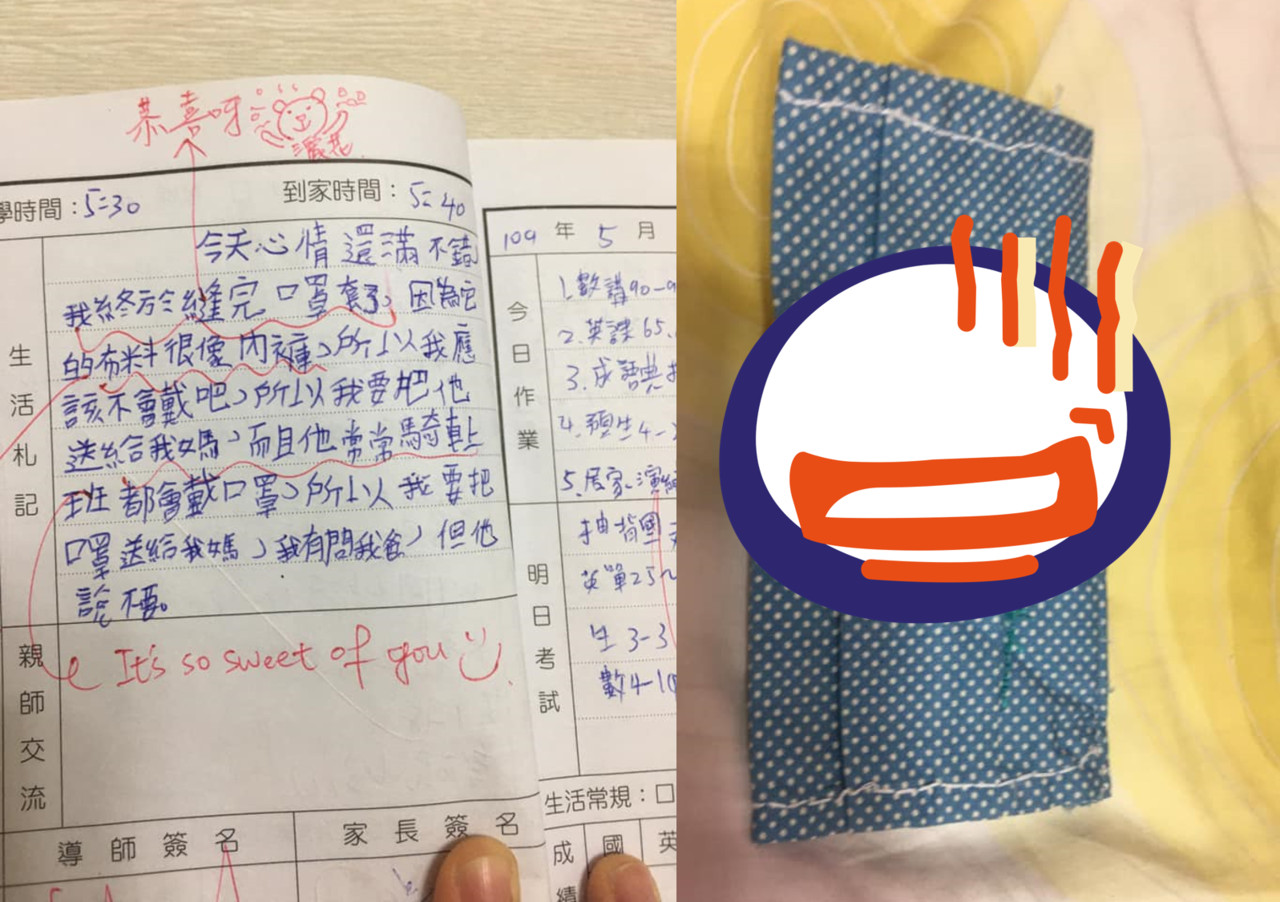 恭喜呀
灑花
學時間：5：30
到家時間：5：40
生活札記
今天心情還滿不錯
我終於縫完口罩套了，因為它
的布料很像內褲，所以我應
該不會戴吧，所以我要把他
送給我媽，而且他常常騎車上
班都會戴口罩，所以我要把
口罩送給我媽，我有問我爸，但他
說不要。
親師交流
It's so sweet of you
導師簽名
家長簽名
109年5月
今日作業
1.數講90-9
2.英課65.
3.成語典
4.預生4-2
5.居家
明日考試
抽背國
英單25
生3-3
數4-1
生活常規：
成績
國
英